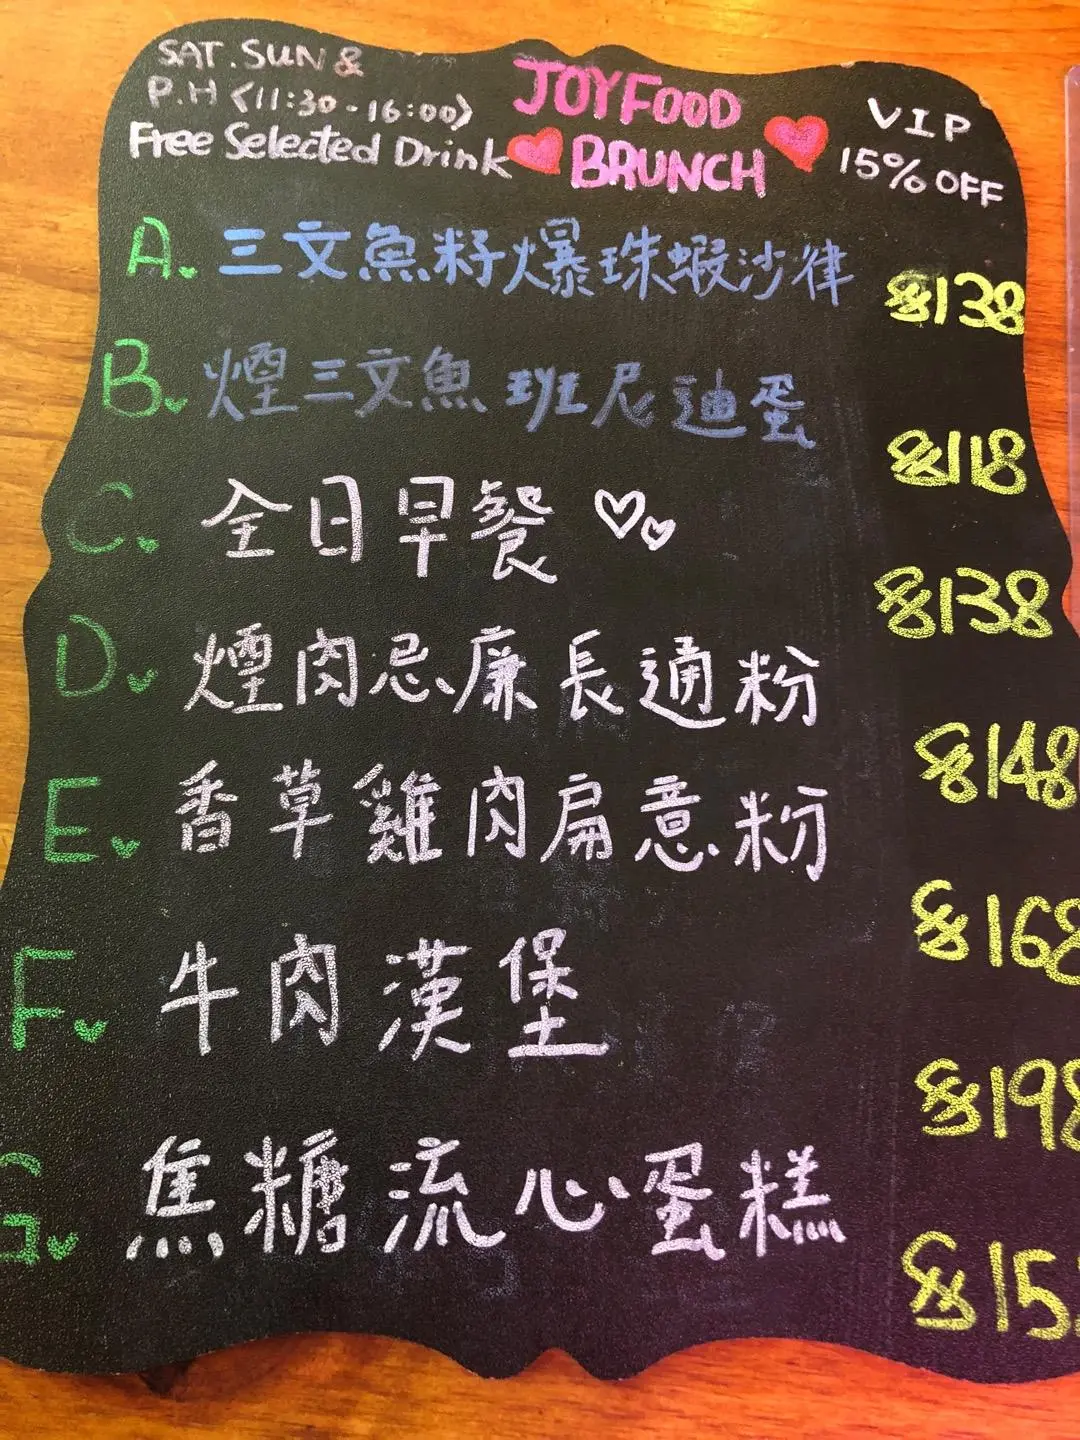 SAT. SUN &
P.H <11:30-16:00>
Free Selected Drink
JOYFOOD
BRUNCH
VIP
15% OFF
A. 三文魚籽爆珠蝦沙律 $138
B. 煙三文魚班尼迪蛋 $118
C. 全日早餐 $138
D. 煙肉忌廉長通粉 $148
E. 香草雞肉扁意粉 $168
F. 牛肉漢堡 $198
G. 焦糖流心蛋糕